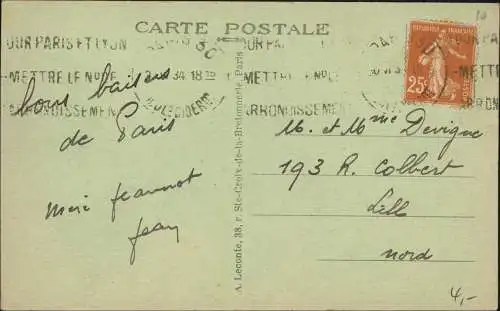 CARTE POSTALE
OUR PARIS ET LYON
METTRE LE No DE
ARRONDISSEMENT
34 18
OUR PARIS ET LYON
METTRE LE No DE
ARRONDISSEMENT
REPUBLIQUE FRANÇAISE
25c
POSTES
bons baisers
de Paris
Jeannot
Jean
A. Leconte, 38, r. Ste-Croix-de-la-Bretonnerie, Paris
M. et Mme Devigne
193 R. Colbert
Lill
Nord
4,-